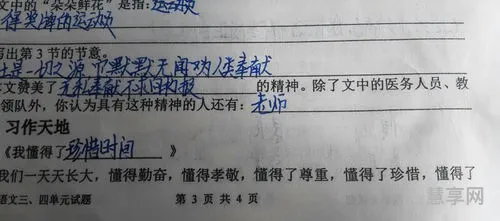 文中的“朵朵鲜花”是指:运动员
得奖牌的运动员
写出第 3 节的节意。
土是一切之源,它默默无闻为人类奉献
本文赞美了无私奉献不求回报的精神。除了文中的医务人员、教
领队外,你认为具有这种精神的人还有:老师
习作天地
《我懂得了珍惜时间》
我们一天天长大,懂得勤奋,懂得孝敬,懂得了尊重,懂得了珍惜,懂得了
语文三、四单元试题 第 3 页 共 4 页
慧享网